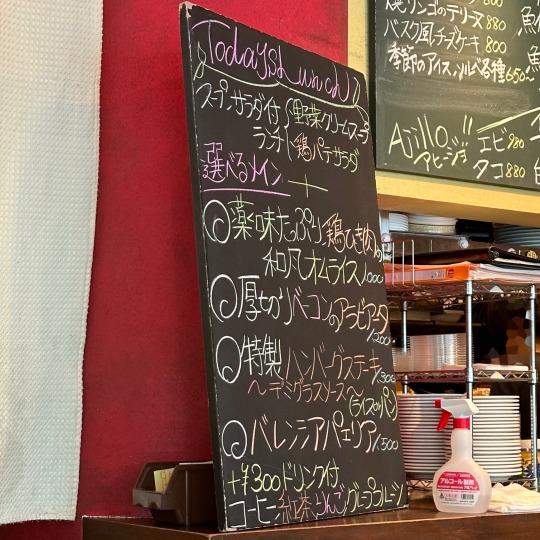 Today's Lunch
スープ・サラダ付 野菜クリームスープ
ランチ 鶏パテサラダ
選べるメイン
薬味たっぷり鶏ひき肉の
和風オムライス 1000
厚切りベーコンのアラビアータ
1200
特製ハンバーグステーキ
1300
〜デミグラスソース〜
(ライスorパン)
バレンシアパエリア 1500
+¥300ドリンク付
コーヒー 紅茶 りんご グレープフルーツ
焼リンゴのテリーヌ 880
バスク風チーズケーキ 800
季節のアイス、ソルベ各種 650〜
Ajillo!!
アヒージョ
エビ 980
タコ 880
魚
アルコール製剤